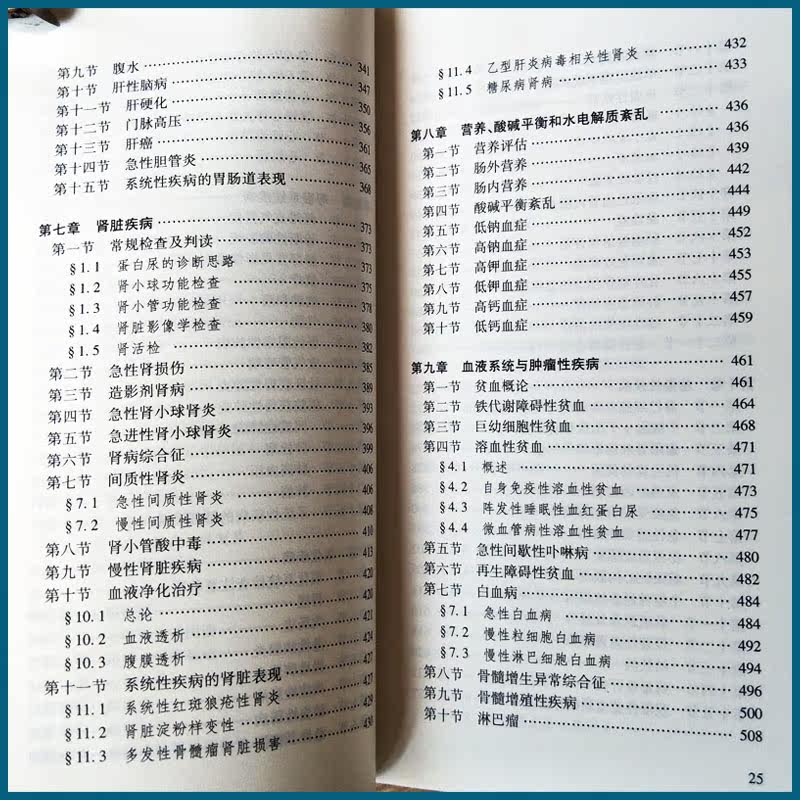 第九节 腹水 341
第十节 肝性脑病 347
第十一节 肝硬化 350
第十二节 门脉高压 356
第十三节 肝癌 361
第十四节 急性胆管炎 365
第十五节 系统性疾病的胃肠道表现 368
第七章 肾脏疾病 373
第一节 常规检查及判读 373
§1.1 蛋白尿的诊断思路 373
§1.2 肾小球功能检查 375
§1.3 肾小管功能检查 378
§1.4 肾脏影像学检查 380
§1.5 肾活检 382
第二节 急性肾损伤 385
第三节 造影剂肾病 389
第四节 急性肾小球肾炎 393
第五节 急进性肾小球肾炎 396
第六节 肾病综合征 399
第七节 间质性肾炎 406
§7.1 急性间质性肾炎 406
§7.2 慢性间质性肾炎 408
第八节 肾小管酸中毒 410
第九节 慢性肾脏疾病 413
第十节 血液净化治疗 420
§10.1 总论 420
§10.2 血液透析 421
§10.3 腹膜透析 424
第十一节 系统性疾病的肾脏表现 427
§11.1 系统性红斑狼疮性肾炎 427
§11.2 肾脏淀粉样变性 429
§11.3 多发性骨髓瘤肾脏损害 430
§11.4 乙型肝炎病毒相关性肾炎 432
§11.5 糖尿病肾病 433
第八章 营养、酸碱平衡和水电解质紊乱 436
第一节 营养评估 436
第二节 肠外营养 439
第三节 肠内营养 442
第四节 酸碱平衡紊乱 444
第五节 低钠血症 449
第六节 高钠血症 452
第七节 高钾血症 453
第八节 低钾血症 455
第九节 高钙血症 457
第十节 低钙血症 459
第九章 血液系统与肿瘤性疾病 461
第一节 贫血概论 461
第二节 铁代谢障碍性贫血 464
第三节 巨幼细胞性贫血 468
第四节 溶血性贫血 471
§4.1 概述 471
§4.2 自身免疫性溶血性贫血 473
§4.3 阵发性睡眠性血红蛋白尿 475
§4.4 微血管病性溶血性贫血 477
第五节 急性间歇性卟啉病 480
第六节 再生障碍性贫血 482
第七节 白血病 484
§7.1 急性白血病 484
§7.2 慢性粒细胞白血病 492
§7.3 慢性淋巴细胞白血病 494
第八节 骨髓增生异常综合征 496
第九节 骨髓增殖性疾病 500
第十节 淋巴瘤 508
25